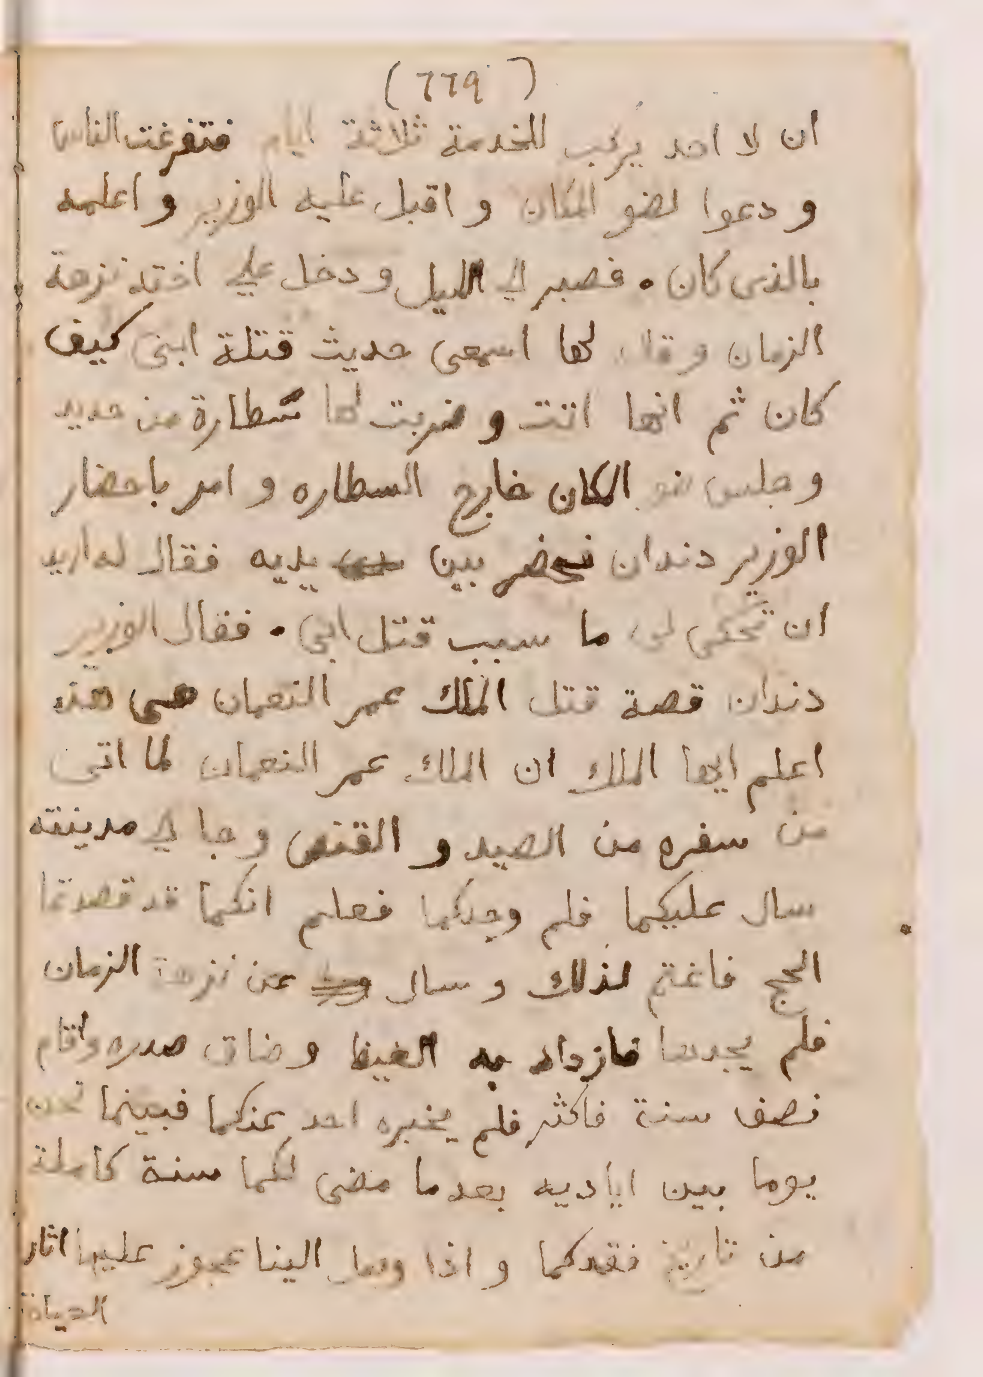 (٦٦٩)
ان لا احد يركب للخدمة ثلاثة ايام فتفرغت الناس
و دعوا لضو المكان و اقبل عليه الوزير و اعلمه
بالذى كان . فصبر الي الليل و دخل علي اخته نزهة
الزمان و قال لها اسمعى حديث قتلة ابى كيف
كان ثم انها اتت و ضربت لها سطارة من حديد
و جلس ضو المكان خارج السطاره و امر باحضار
الوزير دندان فحضر بين يديه فقال له اريد
ان تحكى لى ما سبب قتل ابى . فقال الوزير
دندان قصة قتل الملك عمر النعمان هى هذه
اعلم ايها الملك ان الملك عمر النعمان لما اتى
من سفره من الصيد و القنص و جا الي مدينته
سال عليكما فلم وجدكما فعلم انكما قد قصدتما
الحج فاغتم لذلك و سال عن نزهة الزمان
فلم يجدها فازداد به الغيظ و ضاق صدره واقام
نصف سنة فاكثر فلم يخبره احد عنكما فبينما نحن
يوما بين اياديه بعدما مضى لكما سنة كاملة
من تاريخ فقدكما و اذا وصل الينا عجوز عليها اثار